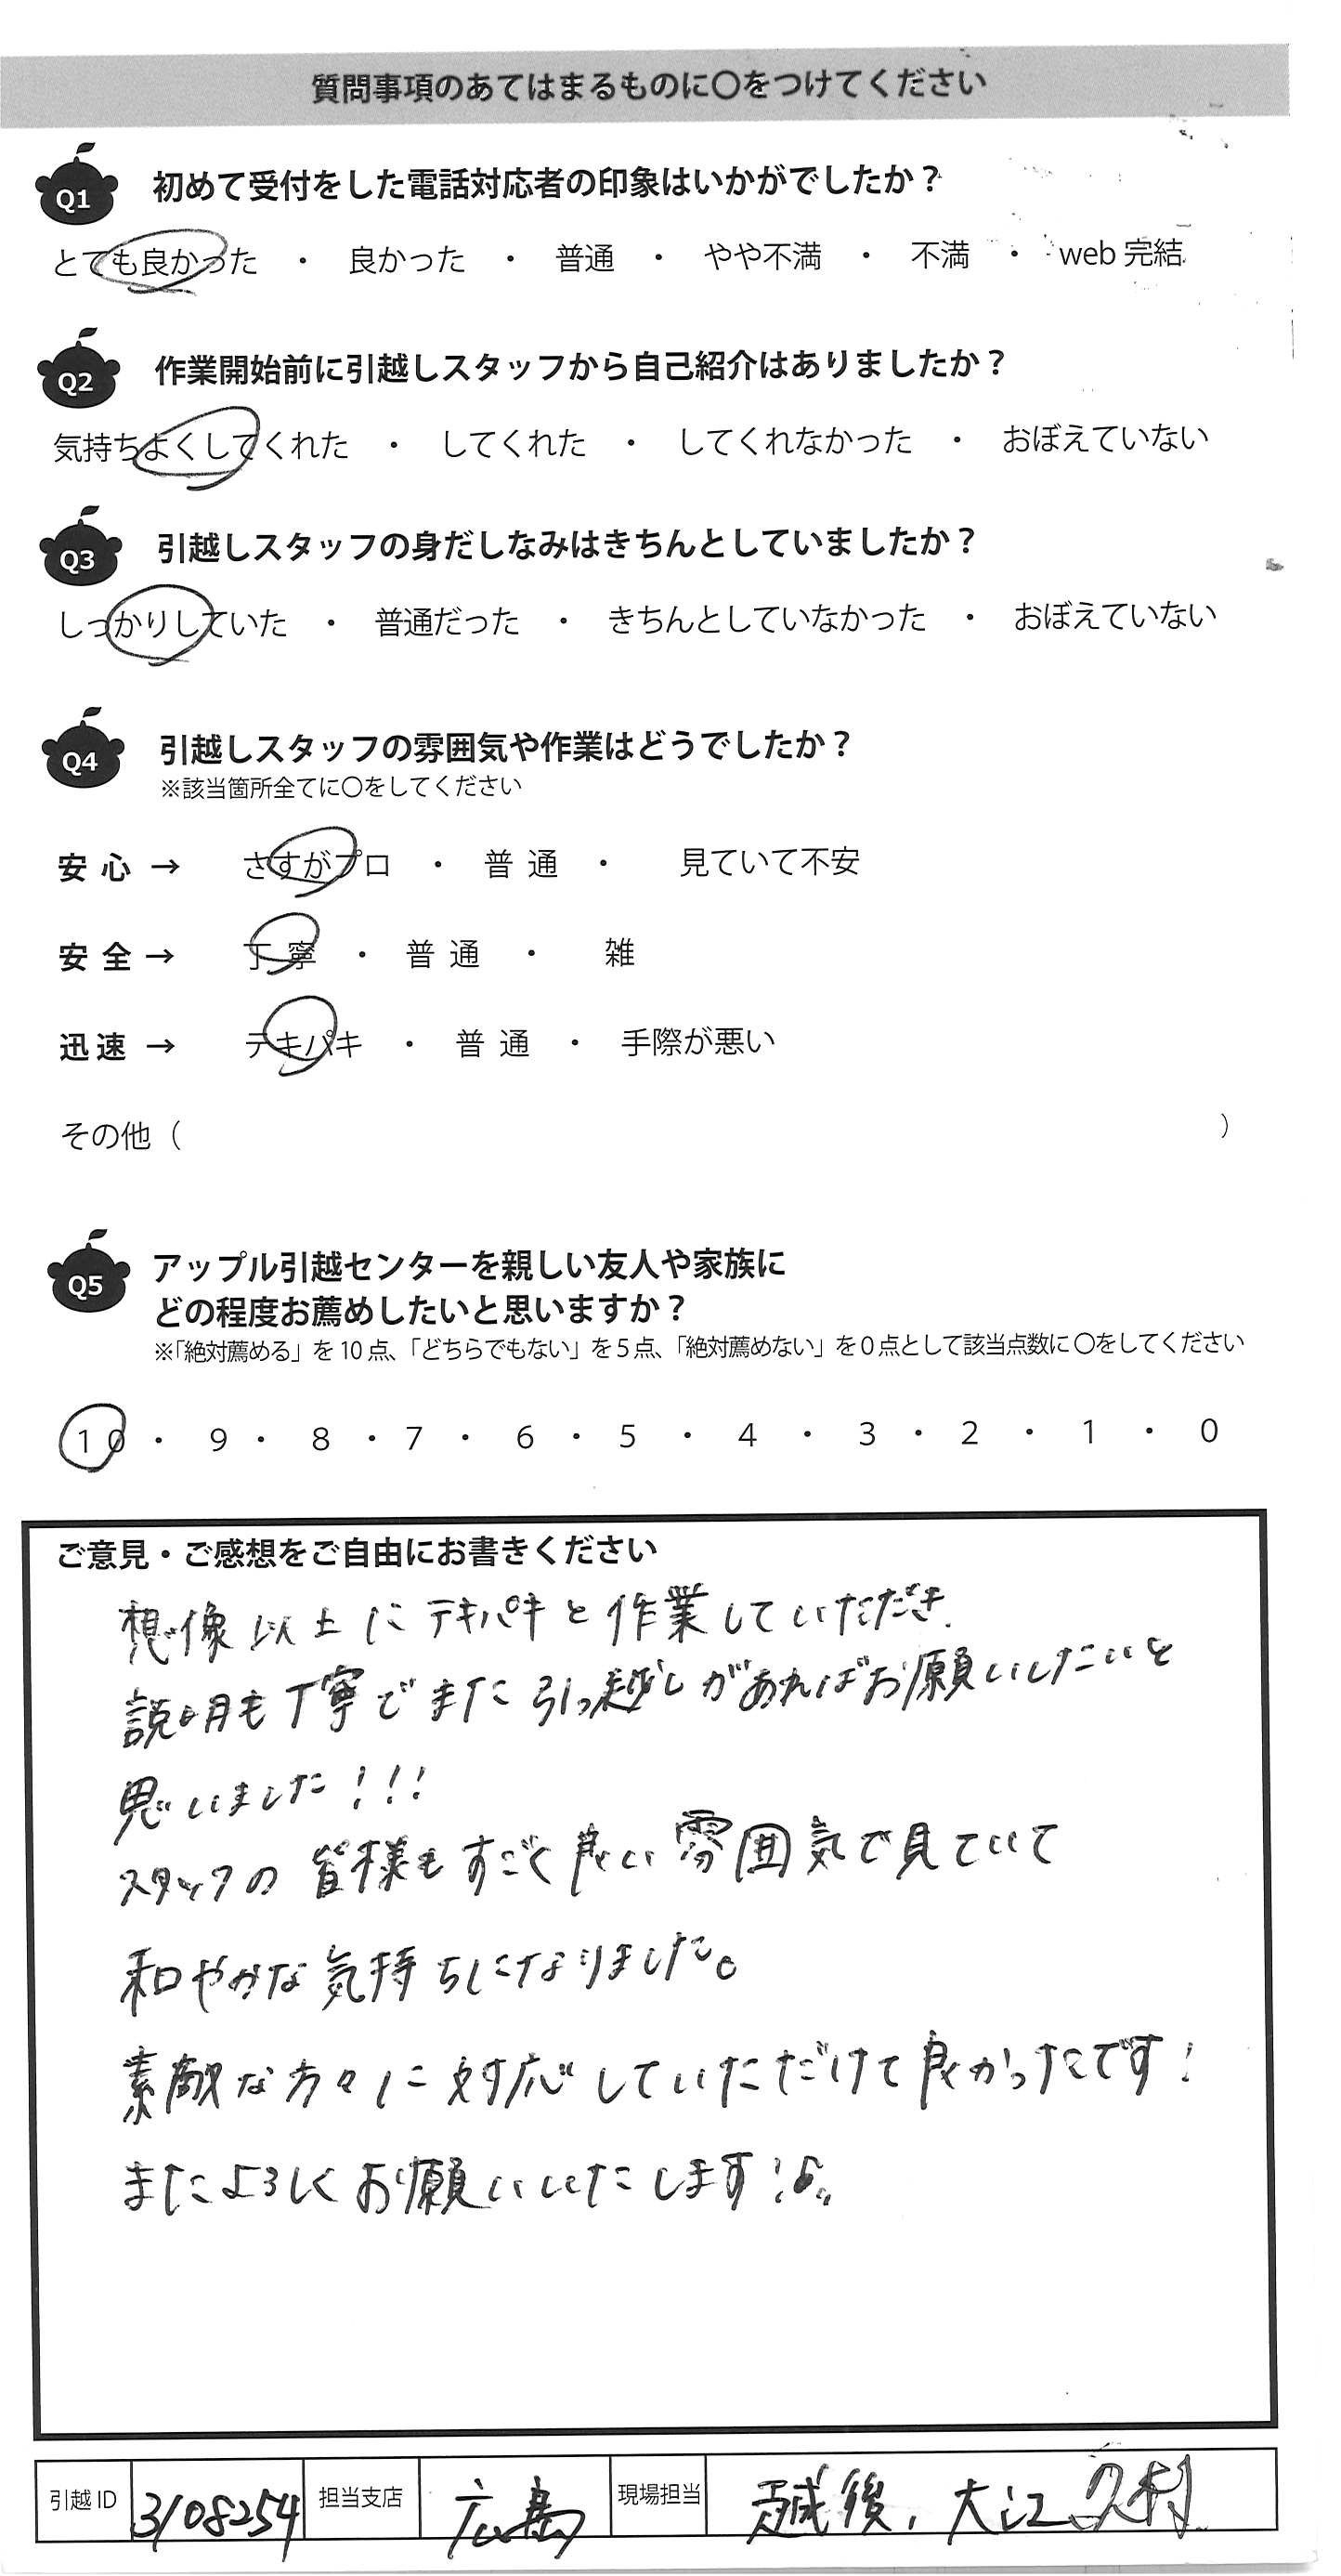 質問事項のあてはまるものに〇をつけてください
Q1 初めて受付をした電話対応者の印象はいかがでしたか？
とても良かった ・ 良かった ・ 普通 ・ やや不満 ・ 不満 ・ web 完結
Q2 作業開始前に引越しスタッフから自己紹介はありましたか？
気持ちよくしてくれた ・ してくれた ・ してくれなかった ・ おぼえていない
Q3 引越しスタッフの身だしなみはきちんとしていましたか？
しっかりしていた ・ 普通だった ・ きちんとしていなかった ・ おぼえていない
Q4 引越しスタッフの雰囲気や作業はどうでしたか？
※該当箇所全てに〇をしてください
安心 → さすがプロ ・ 普通 ・ 見ていて不安
安全 → 丁寧 ・ 普通 ・ 雑
迅速 → テキパキ ・ 普通 ・ 手際が悪い
その他（ ）
Q5 アップル引越センターを親しい友人や家族に
どの程度お薦めしたいと思いますか？
※「絶対薦める」を 10 点、「どちらでもない」を 5 点、「絶対薦めない」を 0 点として該当点数に 〇をしてください
10 ・ 9 ・ 8 ・ 7 ・ 6 ・ 5 ・ 4 ・ 3 ・ 2 ・ 1 ・ 0
ご意見・ご感想をご自由にお書きください
想像以上にテキパキと作業していただき、
説明も丁寧でまた引っ越しがあればお願いしたいと
思いました！！！
スタッフの皆様もすごく良い雰囲気で見ていて
和やかな気持ちになりました。
素敵な方々に対応していただけて良かったです！
またよろしくお願いいたします！♪
引越 ID 3108254 担当支店 広島 現場担当 越後、大江 久村